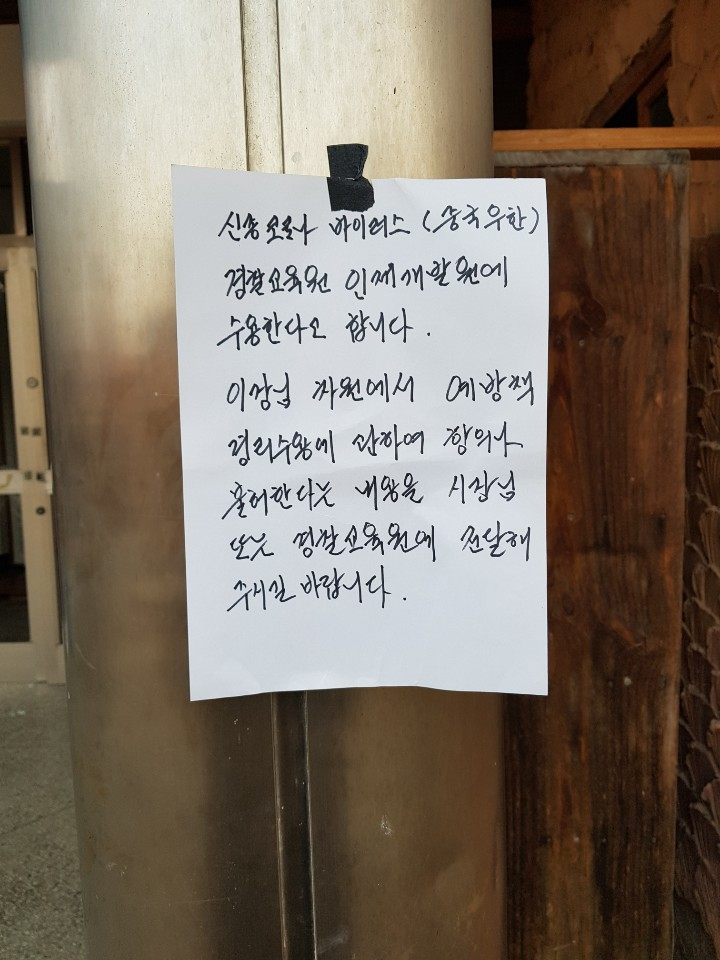 신종코로나 바이러스 (중국우한)
경찰교육원 인재개발원에
수용한다고 합니다.
이장님 차원에서 예방책
격리수용에 관하여 항의나
불허한다는 내용을 시장님
또는 경찰교육원에 전달해
주시길 바랍니다.